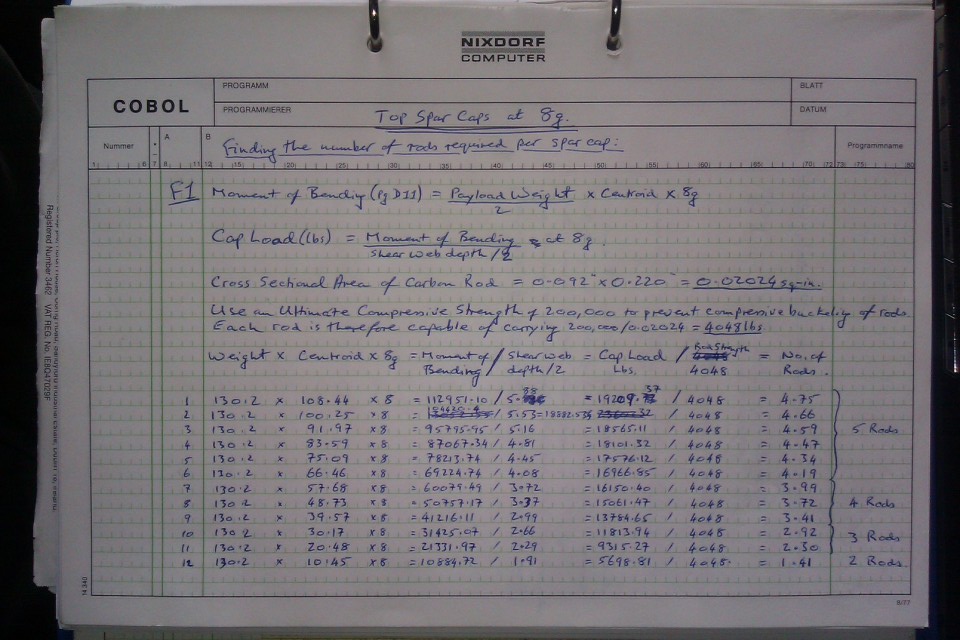 NIXDORF
COMPUTER
COBOL
PROGRAMM
BLATT
PROGRAMMIERER
DATUM
Top Spar Caps at 8g.
Nummer
A
B
Finding the number of rods required per spar cap:
Programmname
F1 Moment of Bending (Pg D11) = Payload Weight / 2 × Centroid × 8g
Cap Load (lbs) = Moment of Bending / Shear Web depth/2 at 8g.
Cross Sectional Area of Carbon Rod = 0.092" × 0.220" = 0.02024 sq-in.
Use an Ultimate Compressive Strength of 200,000 to prevent compressive buckeling of rods.
Each rod is therefore capable of carrying 200,000/0.02024 = 4048 lbs
Weight × Centroid × 8g = Moment of / Shear Web = Cap Load / Rod Strength = No. of
Bending / depth/2 Lbs. 4048 Rods.
1 130.2 × 108.44 × 8 = 112951.10 / 5.88 = 19209.37 / 4048 = 4.75
2 130.2 × 100.25 × 8 = / 5.53 = 18882.53 / 4048 = 4.66
3 130.2 × 91.97 × 8 = 95795.95 / 5.16 = 18565.11 / 4048 = 4.59 5 Rods
4 130.2 × 83.59 × 8 = 87067.34 / 4.81 = 18101.32 / 4048 = 4.47
5 130.2 × 75.09 × 8 = 78213.74 / 4.45 = 17576.12 / 4048 = 4.34
6 130.2 × 66.46 × 8 = 69224.74 / 4.08 = 16966.85 / 4048 = 4.19
7 130.2 × 57.68 × 8 = 60079.49 / 3.72 = 16150.40 / 4048 = 3.99
8 130.2 × 48.73 × 8 = 50757.17 / 3.37 = 15061.47 / 4048 = 3.72 4 Rods
9 130.2 × 39.57 × 8 = 41216.11 / 2.99 = 13784.65 / 4048 = 3.41
10 130.2 × 30.17 × 8 = 31425.07 / 2.66 = 11813.94 / 4048 = 2.92 3 Rods
11 130.2 × 20.48 × 8 = 21331.97 / 2.29 = 9315.27 / 4048 = 2.30
12 130.2 × 10.45 × 8 = 10884.72 / 1.91 = 5698.81 / 4048 = 1.41 2 Rods.
Registered Number 3462 VAT REG. No.
14 340
9/77